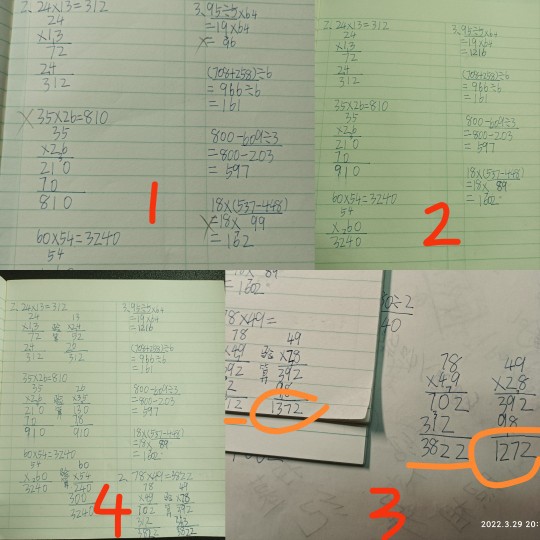 2. 24×13=312
24
×13
72
24
312
35×26=810
35
×26
210
70
810
60×54=3240
54
3. 95÷5×64
=19×64
= 96
(708+258)÷6
=966÷6
=161
800-609÷3
=800-203
=597
18×(537-448)
=18× 99
=162
1
2. 24×13=312
24
×13
72
24
312
35×26=810
35
×26
210
70
910
60×54=3240
54
×60
3240
3. 95÷5×64
=19×64
=1216
(708+258)÷6
=966÷6
=161
800-609÷3
=800-203
=597
18×(537-448)
=18× 89
=1602
2
2. 24×13=312
24 13
×13 验 ×24
72 算 52
24 26
312 312
35×26=810
35 26
×26 验 ×35
210 算 130
70 78
910 910
60×54=3240
54 60
×60 验 ×54
3240 算 240
300
3240
3. 95÷5×64
=19×64
=1216
(708+258)÷6
=966÷6
=161
800-609÷3
=800-203
=597
18×(537-448)
=18× 89
=1602
2. 78×49=3822
78 49
×49 验 ×78
702 算 392
312 343
3822 3822
4
× 89
=1602
78×49=
78 49
×49 验 ×78
算 392
1372
÷2
40
78 49
×49 ×28
702 392
312 98
3822 1272
3
2022.3.29 20: